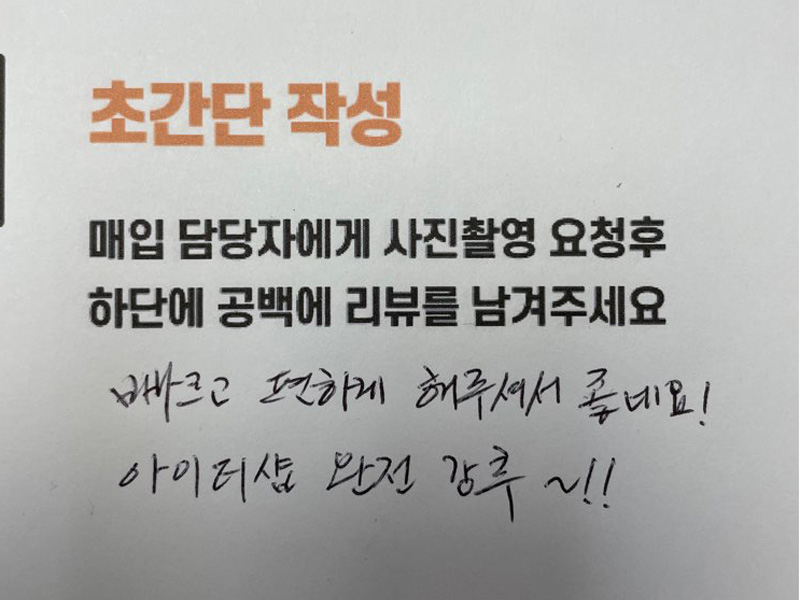 초간단 작성
매입 담당자에게 사진촬영 요청후
하단에 공백에 리뷰를 남겨주세요
빠르고 편하게 해주셔서 좋네요!
아이더샵 완전 강추~!!